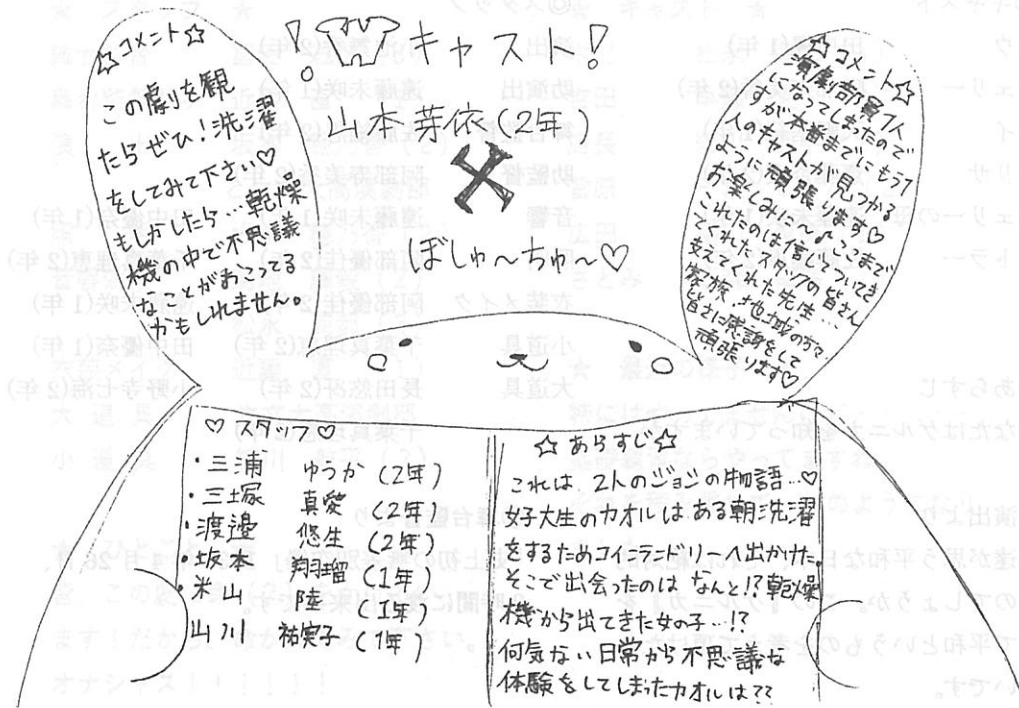 キャスト!
山本芽依(2年)
ぼしゅ〜ちゅ〜♡
☆コメント☆
この劇を観
たらぜひ!洗濯
をしてみて下さい♡
もしかしたら…乾燥
機の中で不思議
なことがおこってる
かもしれません。
☆コメント☆
演劇部員7人
になってしまったので
すが本番までにもう1
人のキャストが見つかる
ように頑張ります♡
お楽しみに〜♪ここまで
これたのは信じてついてき
てくれたスタッフの皆さん
支えてくれた先生…
家族、地域の方々、
皆さに感謝をして
頑張ります♡
♡スタッフ♡
・三浦 ゆうか(2年)
・三塚 真愛(2年)
・渡邉 悠生(2年)
・坂本 翔瑠(1年)
米山 陸(1年)
山川 祐実子(1年)
☆あらすじ☆
これは、2人のジョンの物語…♡
女子大生のカオルはある朝洗濯
をするためコインランドリーへ出かけた。
そこで出会ったのはなんと!?乾燥
機から出てきた女の子…!?
何気ない日常から不思議な
体験をしてしまったカオルは??